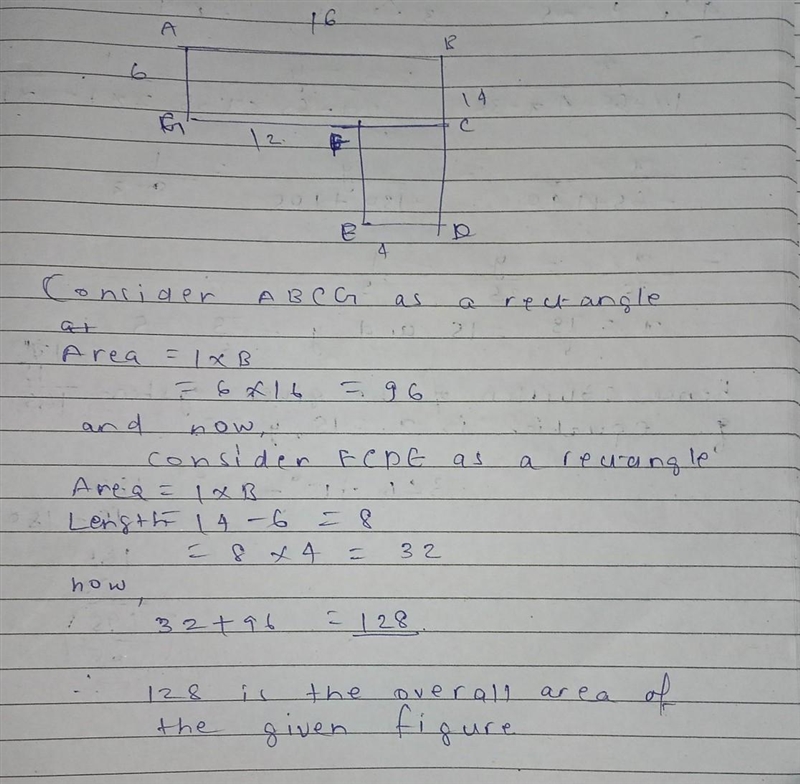 16
A B
6
14
G 12 F C
E D
4
Consider ABCG as a rectangle
Area = l x B
= 6 x 16 = 96
and now,
consider FCDE as a rectangle
Area = l x B
Length = 14 - 6 = 8
= 8 x 4 = 32
now,
32 + 96 = 128
∴ 128 is the overall area of
the given figure